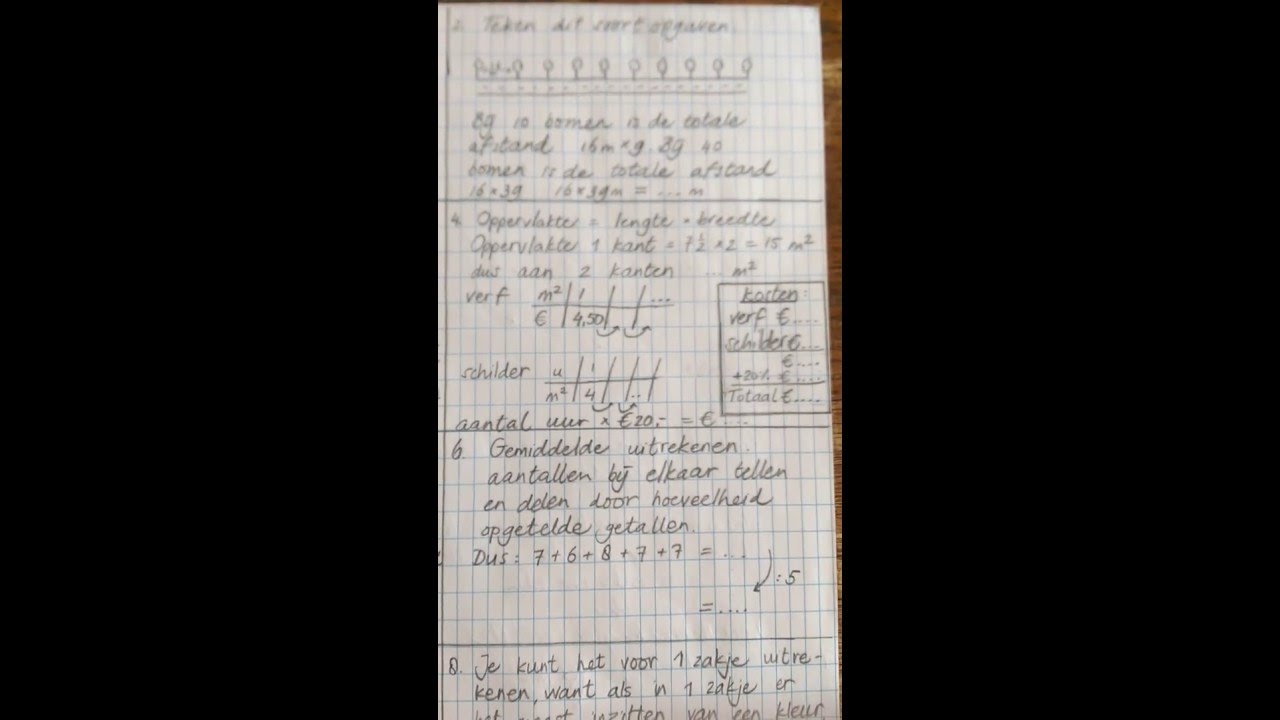 2. Teken dit soort opgaven.
Bij 10 bomen is de totale
afstand 16m × 9. Bij 40
bomen is de totale afstand
16 × 39 16 × 39m = ... m
4. Oppervlakte = lengte × breedte
Oppervlakte 1 kant = 7½ × 2 = 15 m²
dus aan 2 kanten ... m²
verf m² 1 ...
€ 4,50
kosten:
verf €....
schilder €...
€....
+20% €....
Totaal €....
schilder u 1
m² 4 ..
aantal uur × €20,- = € ...
6. Gemiddelde uitrekenen.
aantallen bij elkaar tellen
en delen door hoeveelheid
opgetelde getallen.
Dus: 7 + 6 + 8 + 7 + 7 = ...
: 5
= ....
8. Je kunt het voor 1 zakje uitre-
kenen, want als in 1 zakje er
het meest inzitten van een kleur